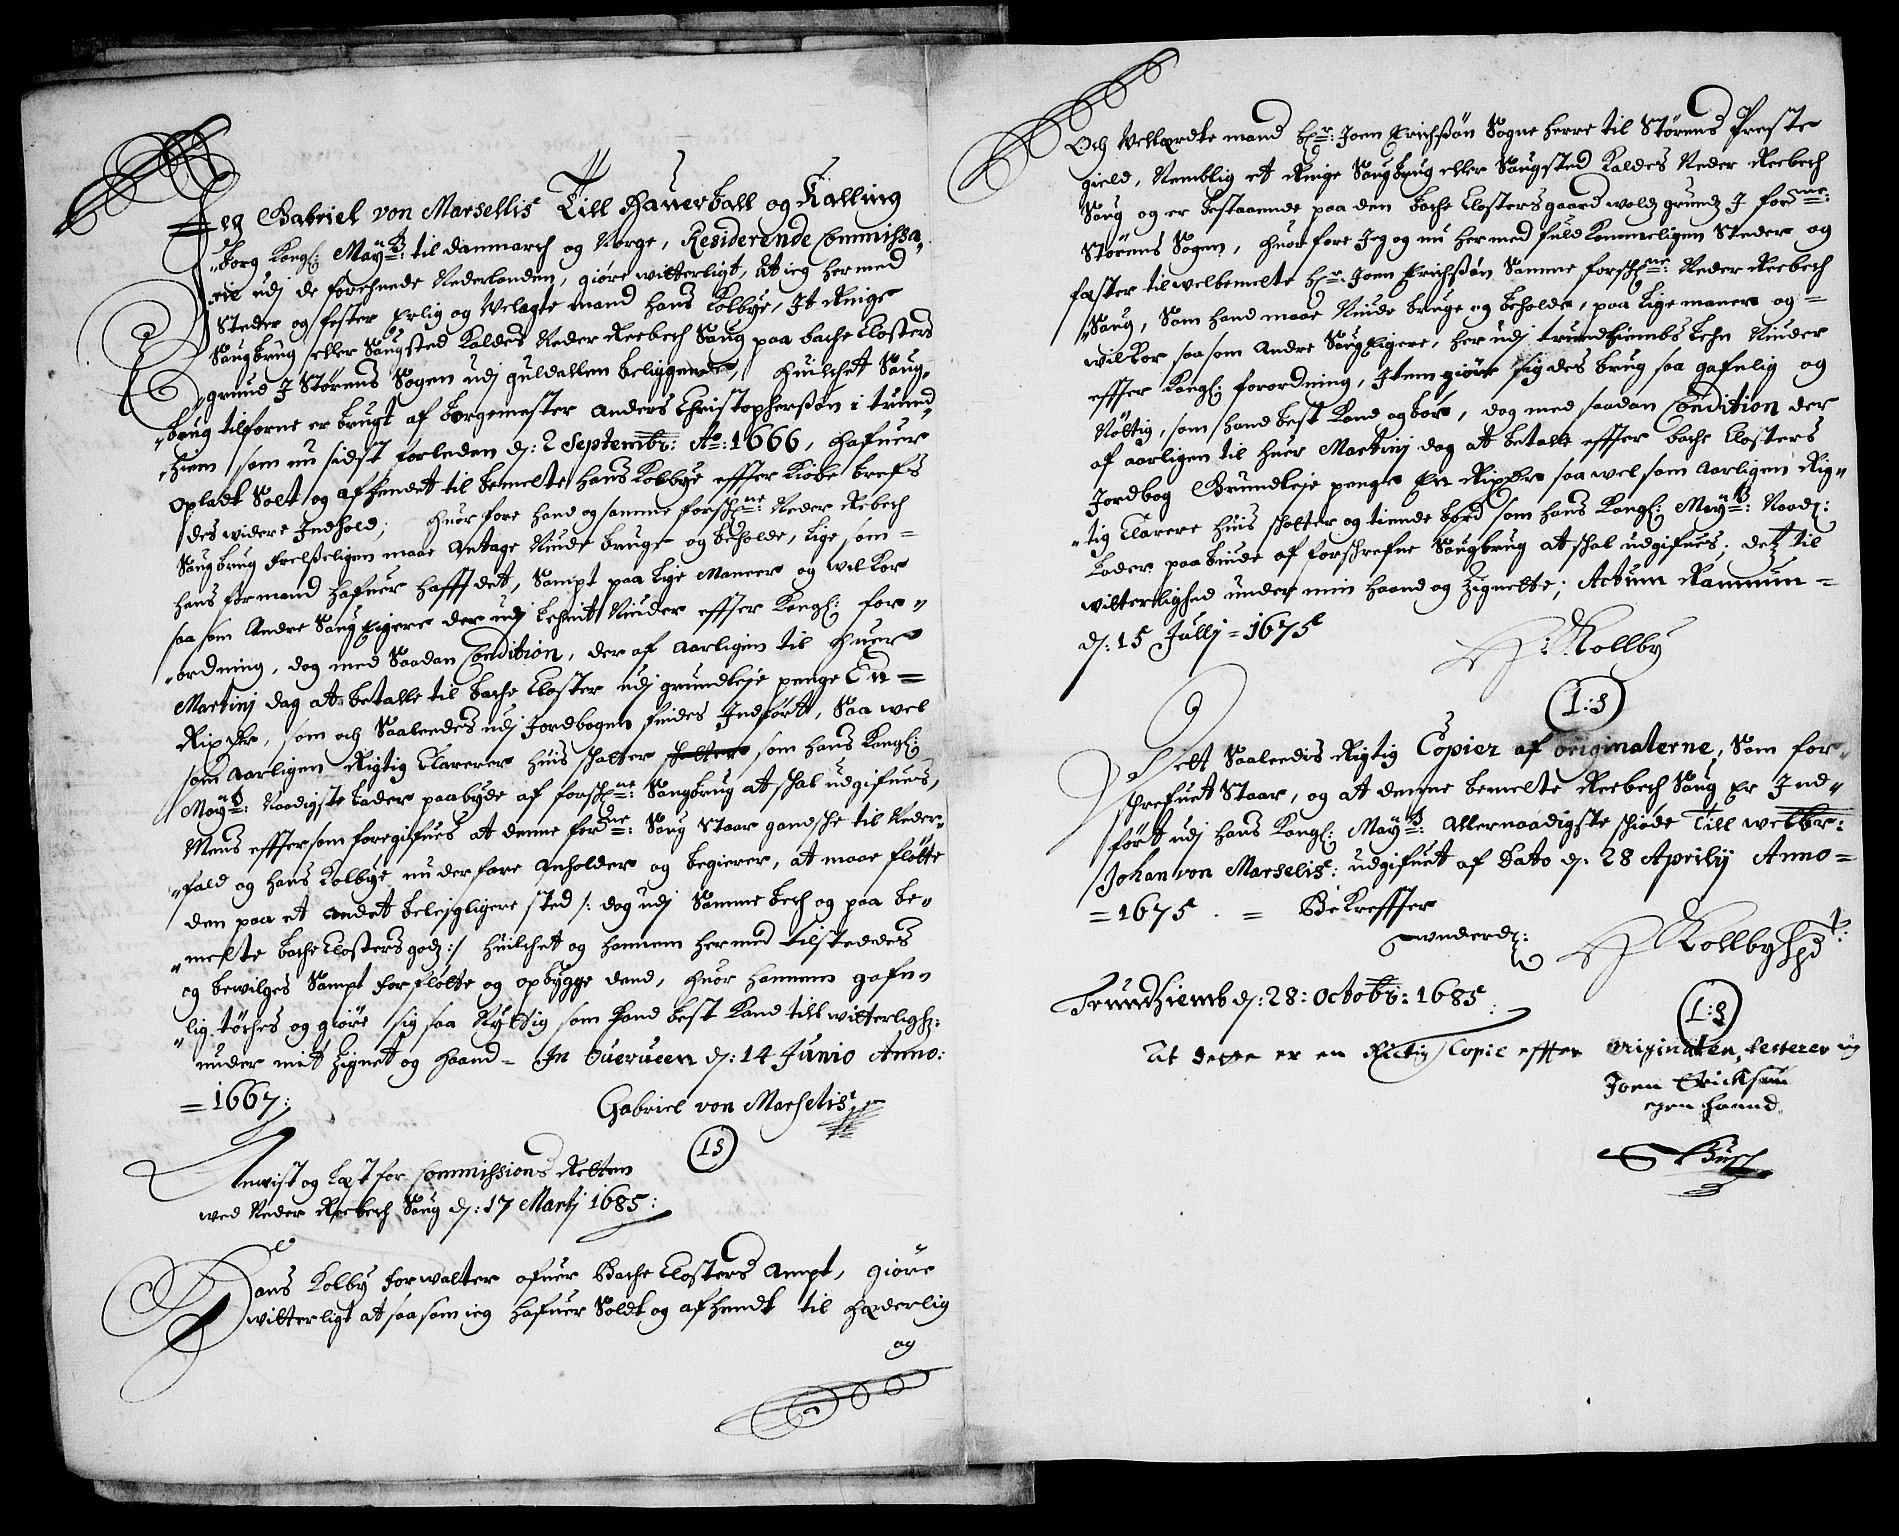 Jeg Gabriel von Marsellis Till Hauerball og Kalling
"borg Kongl: Mayttz: til danmarch og Norge, Residerende Commissa"
rie udj de foreenede Nederlanden, giöre witterligt, at ieg hermed
Steder og fester Erlig og Velagte mand Hans Kolbye, It Ringe
Saugbrug eller Saugsted kaldes Neder Reebech Saug paa Bache Closters
grund J Störens Sogen udj guldallen beliggende, Huilchet Saug,
"brug tilforne er brugt af borgemester Anders Christophersön i trund
"hiem som nu sidst forleden d: 2 Septembr: Ao: 1666, hafuer
opladt Solt og afhendet til bemelte Hans Kolbye effter Kiöbe brefs
des widere Indhold; Huorfore hand og samme forschne: Neder Rebech
Saugbrug Frelsseligen maae Antage Niude bruge og beholde, lige som =
hans formand hafuer hafft det, Sampt paa lige Maneer og wilkor
saa som Andre Saug Eigere der udj Lehnit Niuder effter Kongl: for"
"ordning, dog med Saadan Condition, der af Aarligen til huer
Martinj dag at betalle til Bache Closter udj grundleje penge En =
Rixdr, som och Saaleedes udj Jordbogen findes Indfört, Saa wel
som Aarligen Rigtig Clarerer huis schatter schatter som Hans Kongl:
Mayttz: Naadigste lader paabyde af forschne: Saugbrug at schal udgifues,
Mens effter som foregifues at denne forne: Saug Staar gandsche til Neder"
"fald og Hans Kolbye nu derfore Anholder og begierer, at maae flötte
den paa et andet beleigligere sted /: dog udj Samme bech og paa be"
"melte Bache Closters godz :/ Huilchet og hannem hermed tilsteddes
og bewilges Sampt forflötte og opbygge dend, Huor hannem gafn"
"lig töches og giöre sig saa Nyttig som hand best kand till witterlighz:
under mit Zignet og haand = In Ouerueen d: 14 Junio Anno:
= 1667:
Gabriel von Marselis
LS
Anwist og Læst for Commissions Retten
wed Neder Reebech Saug d: 17 Martj 1685:
Hans Kolby forwalter ofuer Bache Closters Ampt, giöre
witterligt at saasom ieg hafuer Soldt og afhendt til Hæderlig
og
Och Vellærdte mand hr: Joen Erichssön Sogne herre til Störens Preste
gield, Nemblig et Ringe Saugbrug eller Saugsted kaldes Neder Reebech
Saug og er bestaaende paa den Bache Closters gaard wolds grund J forne:
Störens Sogen, Huorfore Jeg og nu hermed fuldkommeligen Steder og
fæster til welbemelte hr: Joen Erichssön Samme forschne: Neder Reebech
"Saug, Som hand maae Niude bruge og beholde, paa lige maneer og =
wilkor saa som Andre Saug Eigere, her udj trundhiembs Lehn Niuder
effter Kongl: forordning, Item giöre sig des brug saa gafnlig og
Nöttig, som hand best kand og bör, dog med saadan Condition der
af aarligen til huer Martinj dag at betalle effter Bache Closters
Jordbog Grundleje penge En Rixdr saa wel som Aarligen Rig"
"tig Clarere huis schatter og tiende bord som Hans Kongl: Mayttz: Naadz:
Lader paabiude af forschrefne Saugbrug at schal udgifues; detz til
witterlighed under min Haand og Zignette; Actum Ramnun =
d: 15 Jullj = 1675
H: Kollby
L:S
Dett Saaleedis Rigtig Copier af originalerne, Som for"
schrefuet Staar, og at denne bemelte Reebech Saug Er Ind"
fört udj Hans Kongl: Mayttz: Allernaadigste schiöde Till welbr:
Johan von Marselis: udgifuet af Dato d. 28 Aprilij Anno =
= 1675. = Bekreffter
Trundhiemb d: 28: Octobr: 1685
H Kollby
L:S
At dette er en Rictig Copie effter originalen, testerer ieg
Joen Ericksøn
egen haand